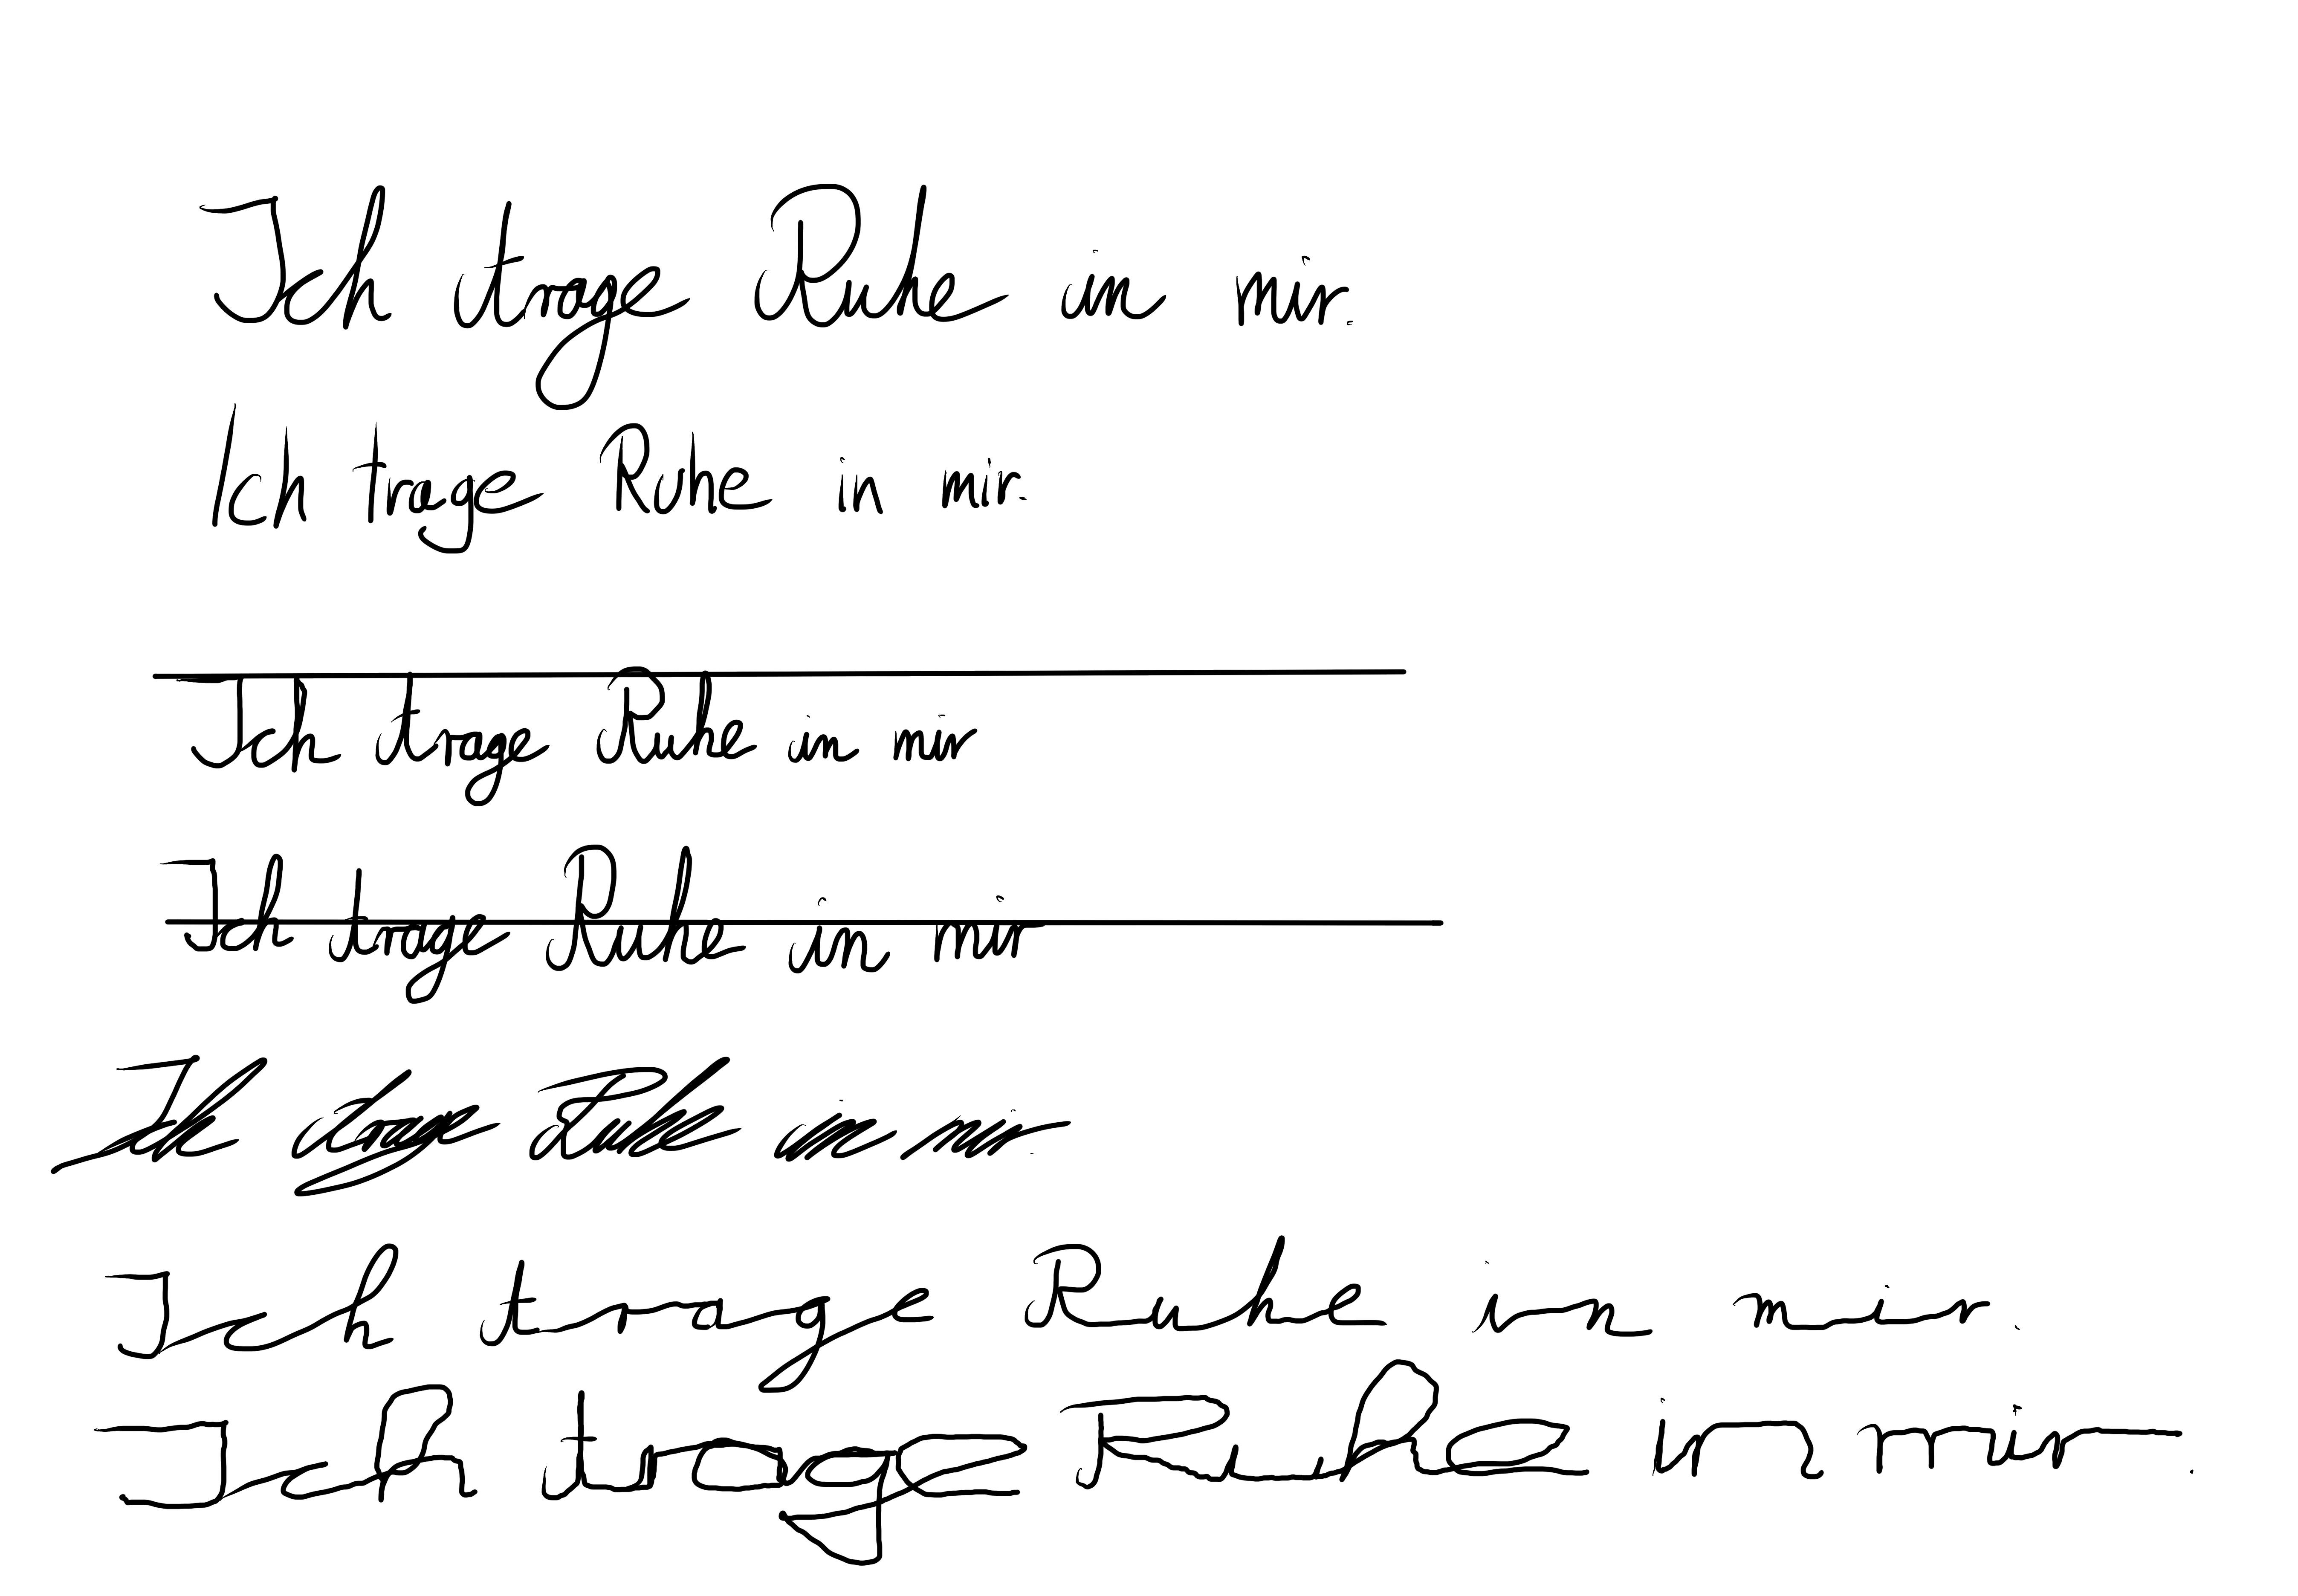 Ich trage Ruhe in mir.
Ich trage Ruhe in mir.
Ich trage Ruhe in mir
Ich trage Ruhe in mir
Ich trage Ruhe in mir.
Ich trage Ruhe in mir.
Ich trage Ruhe in mir.